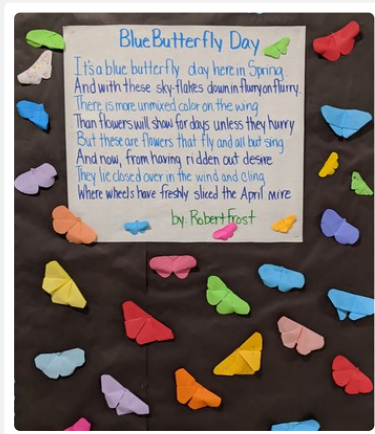 Blue Butterfly Day
It's a blue butterfly day here in Spring
And with these sky-flakes down in flurry on flurry.
There is more unmixed color on the wing
Than flowers will show for days unless they hurry
But these are flowers that fly and all but sing
And now, from having ridden out desire
They lie closed over in the wind and cling
Where wheels have freshly sliced the April mire
by: Robert Frost